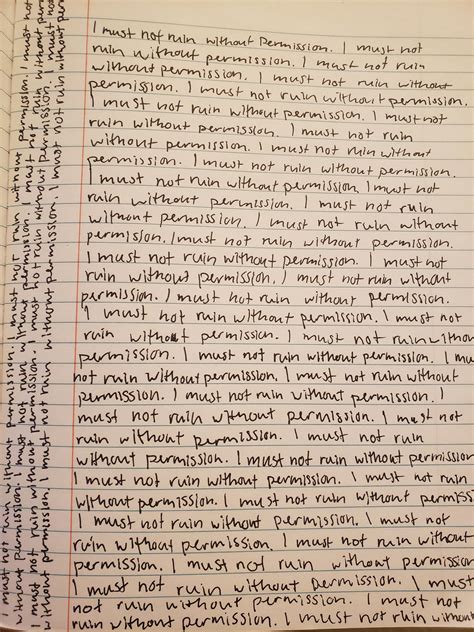 I must not ruin without permission. I must not
ruin without permission. I must not ruin
without permission. I must not ruin without
permission. I must not ruin without permission.
I must not ruin without permission. I must not
ruin without permission. I must not ruin
without permission. I must not ruin without
permission. I must not ruin without permission.
I must not ruin without permission. I must not
ruin without permission. I must not ruin
without permission. I must not ruin without
permission. I must not ruin without permission.
I must not ruin without permission. I must not
ruin without permission. I must not ruin without
permission. I must not ruin without permission.
I must not ruin without permission. I must not
ruin without permission. I must not ruin without
permission. I must not ruin without permission. I must
not ruin without permission. I must not ruin without
permission. I must not ruin without permission. I
must not ruin without permission. I must not
ruin without permission. I must not ruin
without permission. I must not ruin without permission
I must not ruin without permission. I must not ruin
without permission. I must not ruin without permiss
I must not ruin without permission. I must not
ruin without permission. I must not ruin without
permission. I must not ruin without permission
I must not ruin without permission. I must
not ruin without permission. I must not ruin
not ruin without permission. I must not ruin without
I must not ruin without permission. I must not ruin without permission. I must not
without permission. I must not ruin without permission. I must not ruin without per
I must not ruin without permission. I must not ruin without permission. I must not
without permission. I must not ruin without permission. I must not ruin without per